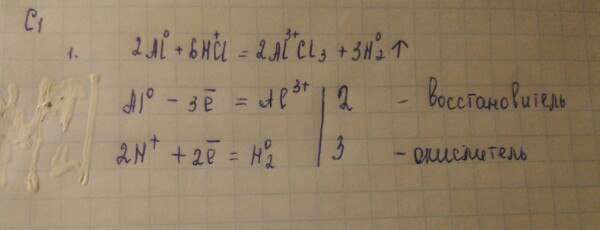 C1
1. 2Al⁰ + 6H⁺Cl = 2Al³⁺Cl₃ + 3H₂⁰ ↑
Al⁰ - 3ē = Al³⁺ | 2 - восстановитель
2H⁺ + 2ē = H₂⁰ | 3 - окислитель